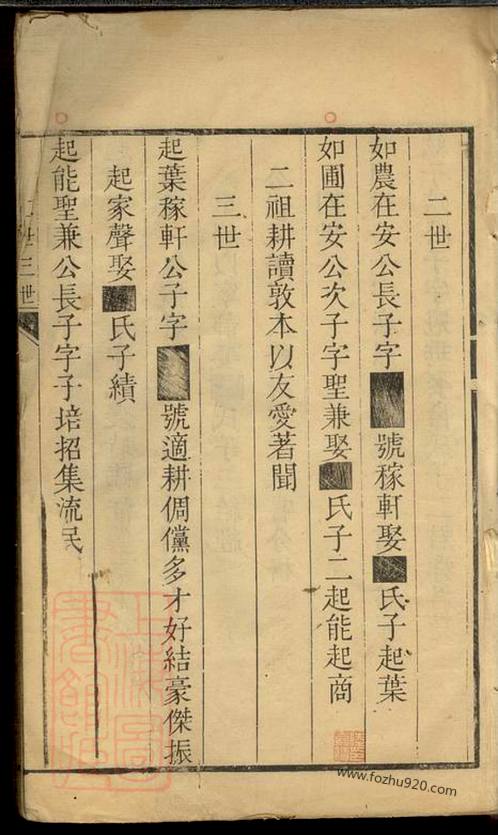 二世
如農在安公長子字號稼軒娶氏子起葉
如圃在安公次子字聖兼娶氏子二起能起商
二祖耕讀敦本以友愛著聞
三世
起葉稼軒公子字號適耕倜儻多才好結豪傑振
起家聲娶氏子績
起能聖兼公長子字子培招集流民
二世三世
www.fozhu920.com